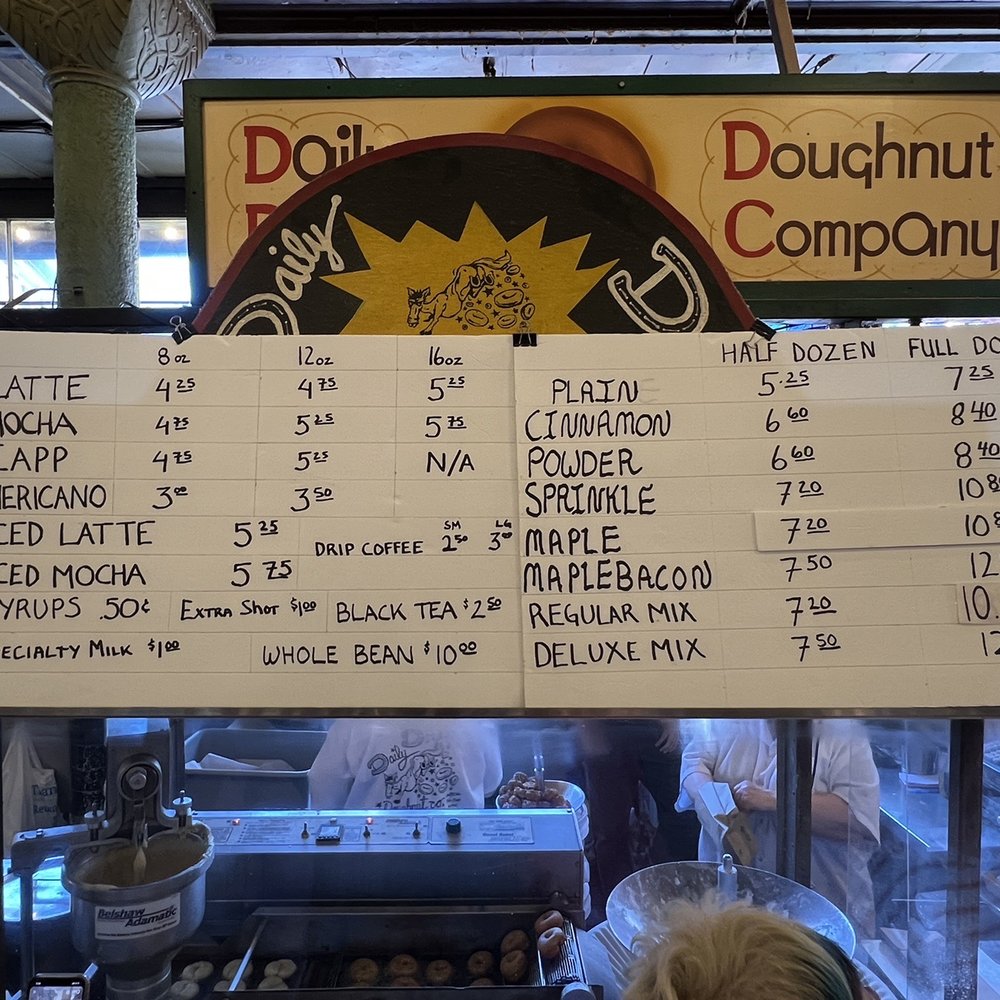 Daily
Doughnut
Company
Daily
D
8 oz 12 oz 16 oz
LATTE 4 25 4 75 5 25
MOCHA 4 75 5 25 5 75
CAPP 4 75 5 25 N/A
ERICANO 3 00 3 50
CED LATTE 5 25
DRIP COFFEE SM 2 50 LG 3 00
CED MOCHA 5 75
YRUPS .50¢ EXTRA SHOT $1 00 BLACK TEA $2 50
ECIALTY MILK $1 00 WHOLE BEAN $10 00
HALF DOZEN FULL DO
PLAIN 5.25 7 25
CINNAMON 6 60 8 40
POWDER 6 60 8 40
SPRINKLE 7 20 10 8
MAPLE 7 20 10 8
MAPLE BACON 7 50 12
REGULAR MIX 7 20 10.
DELUXE MIX 7 50 12
Daily
Doughnut co.
Belshaw
Adamatic